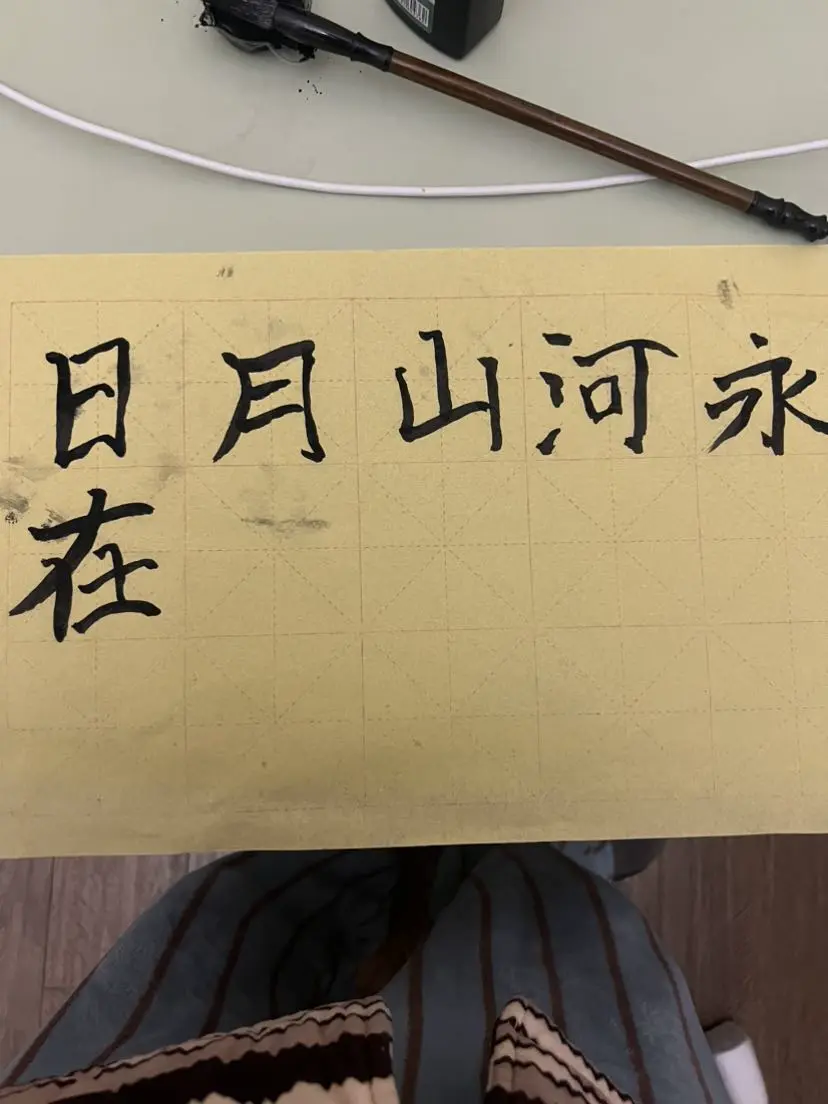 日月山河永
在